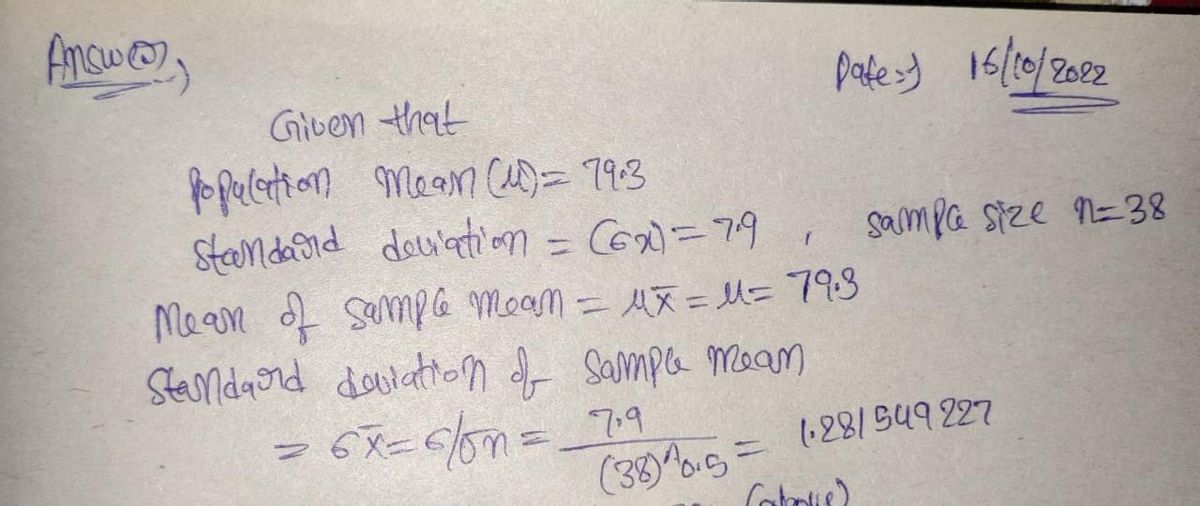 Answer,
Date:⇒ 16/10/2022
Given that
Population mean (μ) = 79.3
Standard deviation = (σx) = 7.9 , sample size n=38
Mean of sample mean = μx̄ = μ = 79.3
Standard deviation of sample mean
= σx̄ = σ/√n = 7.9/(38)^0.5 = 1.281549227
(above)